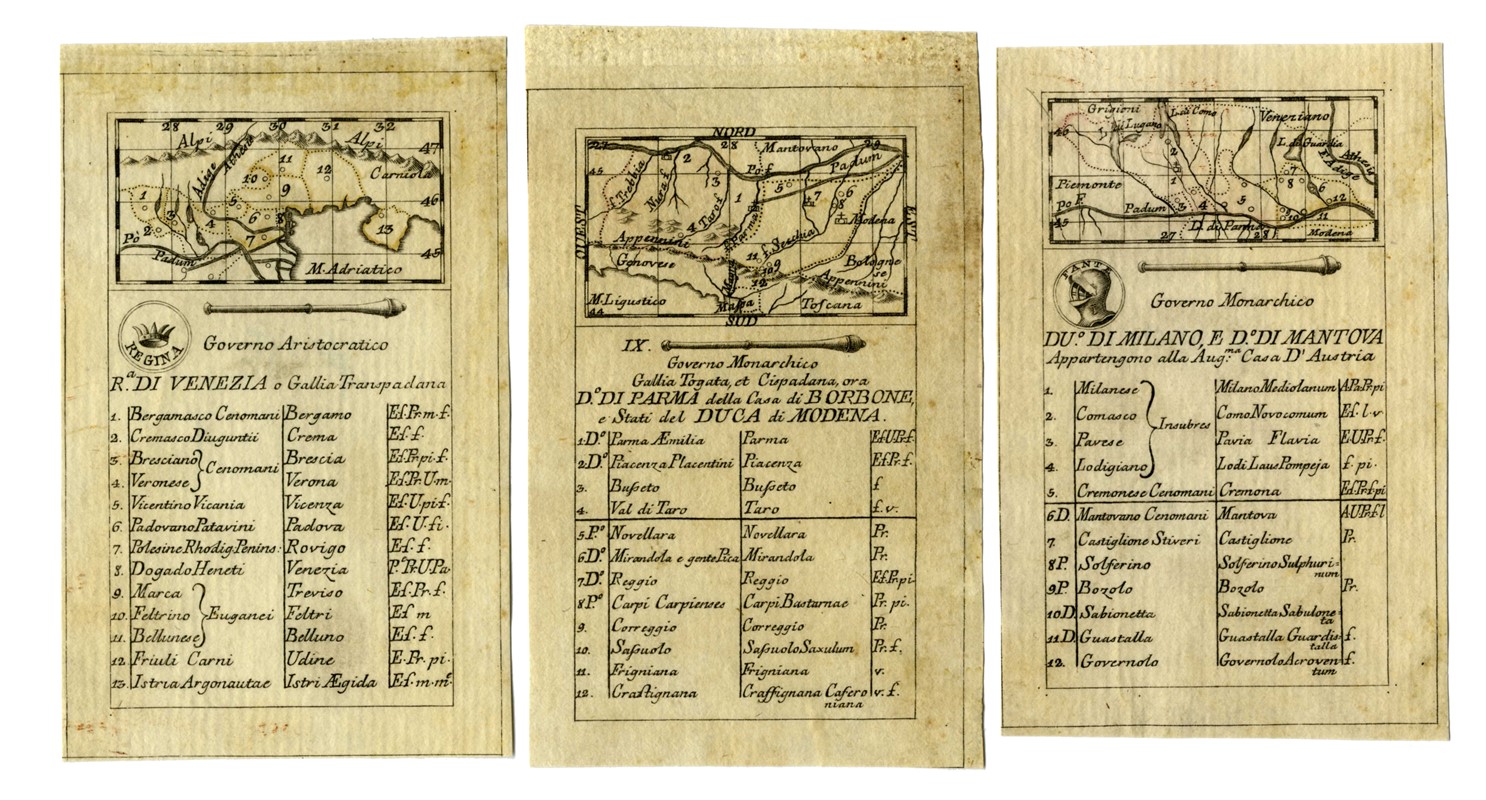 28 29 30 31 32
Alpi Alpi 47
Adige Athesis 11 12
10 Carniola
1 9
5 46
3 6 8
2 4 13
Pò 7
Padum 45
M. Adriatico
REGINA
Governo Aristocratico
R.a DI VENEZIA o Gallia Transpadana
1. Bergamasco Cenomani Bergamo Ef.Pr.m.f.
2. Cremasco Diuguntii Crema Ef.f.
3. Bresciano Cenomani Brescia Ef.Pr.pi.f.
4. Veronese Verona Ef.Pr.U.m.
5. Vicentino Vicania Vicenza Ef.U.pi.f.
6. Padovano Patavini Padova Ef.U.fi.
7. Polesine Rhodig. Penins: Rovigo Ef.f.
8. Dogado Heneti Venezia P.e Pr.U.Pa.
9. Marca Treviso Ef.Pr.f.
10. Feltrino Euganei Feltri Ef m
11. Bellunese Belluno Ef.f.
12. Friuli Carni Udine E.Pr.pi.
13. Istria Argonautae Istri Ægida Ef.m.
NORD
28 Mantovano 29
2 Po f. Padum
45 f. Trebbia Nura f. 3 5
1 7 6
4 Taro f. 8
OUEST Modena EST
f. Parma
Appennini 11 f. Secchia
Genovese 10 9 Bologne
se
Magra 12 Appennini
M. Ligustico Massa Toscana
44
SUD
IX.
Governo Monarchico
Gallia Togata, et Cispadana, ora
D.o DI PARMA della Casa di BORBONE,
e Stati del DUCA di MODENA.
1.D.o Parma Æmilia Parma Ef.U.Pr.f.
2.D.o Piacenza Placentini Piacenza Ef.Pr.f.
3. Bufseto Bufseto f
4. Val di Taro Taro f.v.
5 P.o Novellara Novellara Pr.
6 D.o Mirandola e gente Pica Mirandola Pr.
7 D.o Reggio Reggio Ef.Pr.pi
8 P.o Carpi Carpienses Carpi Bastarnae Pr. pi.
9. Correggio Correggio Pr.
10. Safsuolo Safsuolo Saxulum Pr. f.
11. Frigniana Frigniana v.
12. Craffignana Craffignana Cafero v. f.
niana
Grigioni L. di Como Veneziano
46 L. di Lugano L. di Guardia
Athesis
2 F. Adige
7
Piemonte 1 8 6
Po F. 3 4 5 12
45 Padum 9 10 11
D. di Parma
27 28 Modena
SANTE
Governo Monarchico
DU.o DI MILANO, E D.o DI MANTOVA
Appartengono alla Aug.ma Casa D'Austria
1. Milanese Milano Mediolanum A.P.Pr.pi
2. Comasco Como Novocomum Ef. l.v
Insubres
3. Pavese Pavia Flavia E.U.Pr.f.
4. Lodigiano Lodi Laus Pompeja f. pi.
5. Cremonese Cenomani Cremona Ef.Pr.f.pi
6D. Mantovano Cenomani Mantova A.U.Pr.f.l
7. Castiglione Stiveri Castiglione Pr.
8P. Solferino Solferino Sulphuri=
num
9P Bozolo Bozolo Pr.
10.D. Sabionetta Sabionetta Sabulone=
ta
11.D. Guastalla Guastalla Guardis= f.
talla
12. Governolo Governolo Acroven= f.
tum